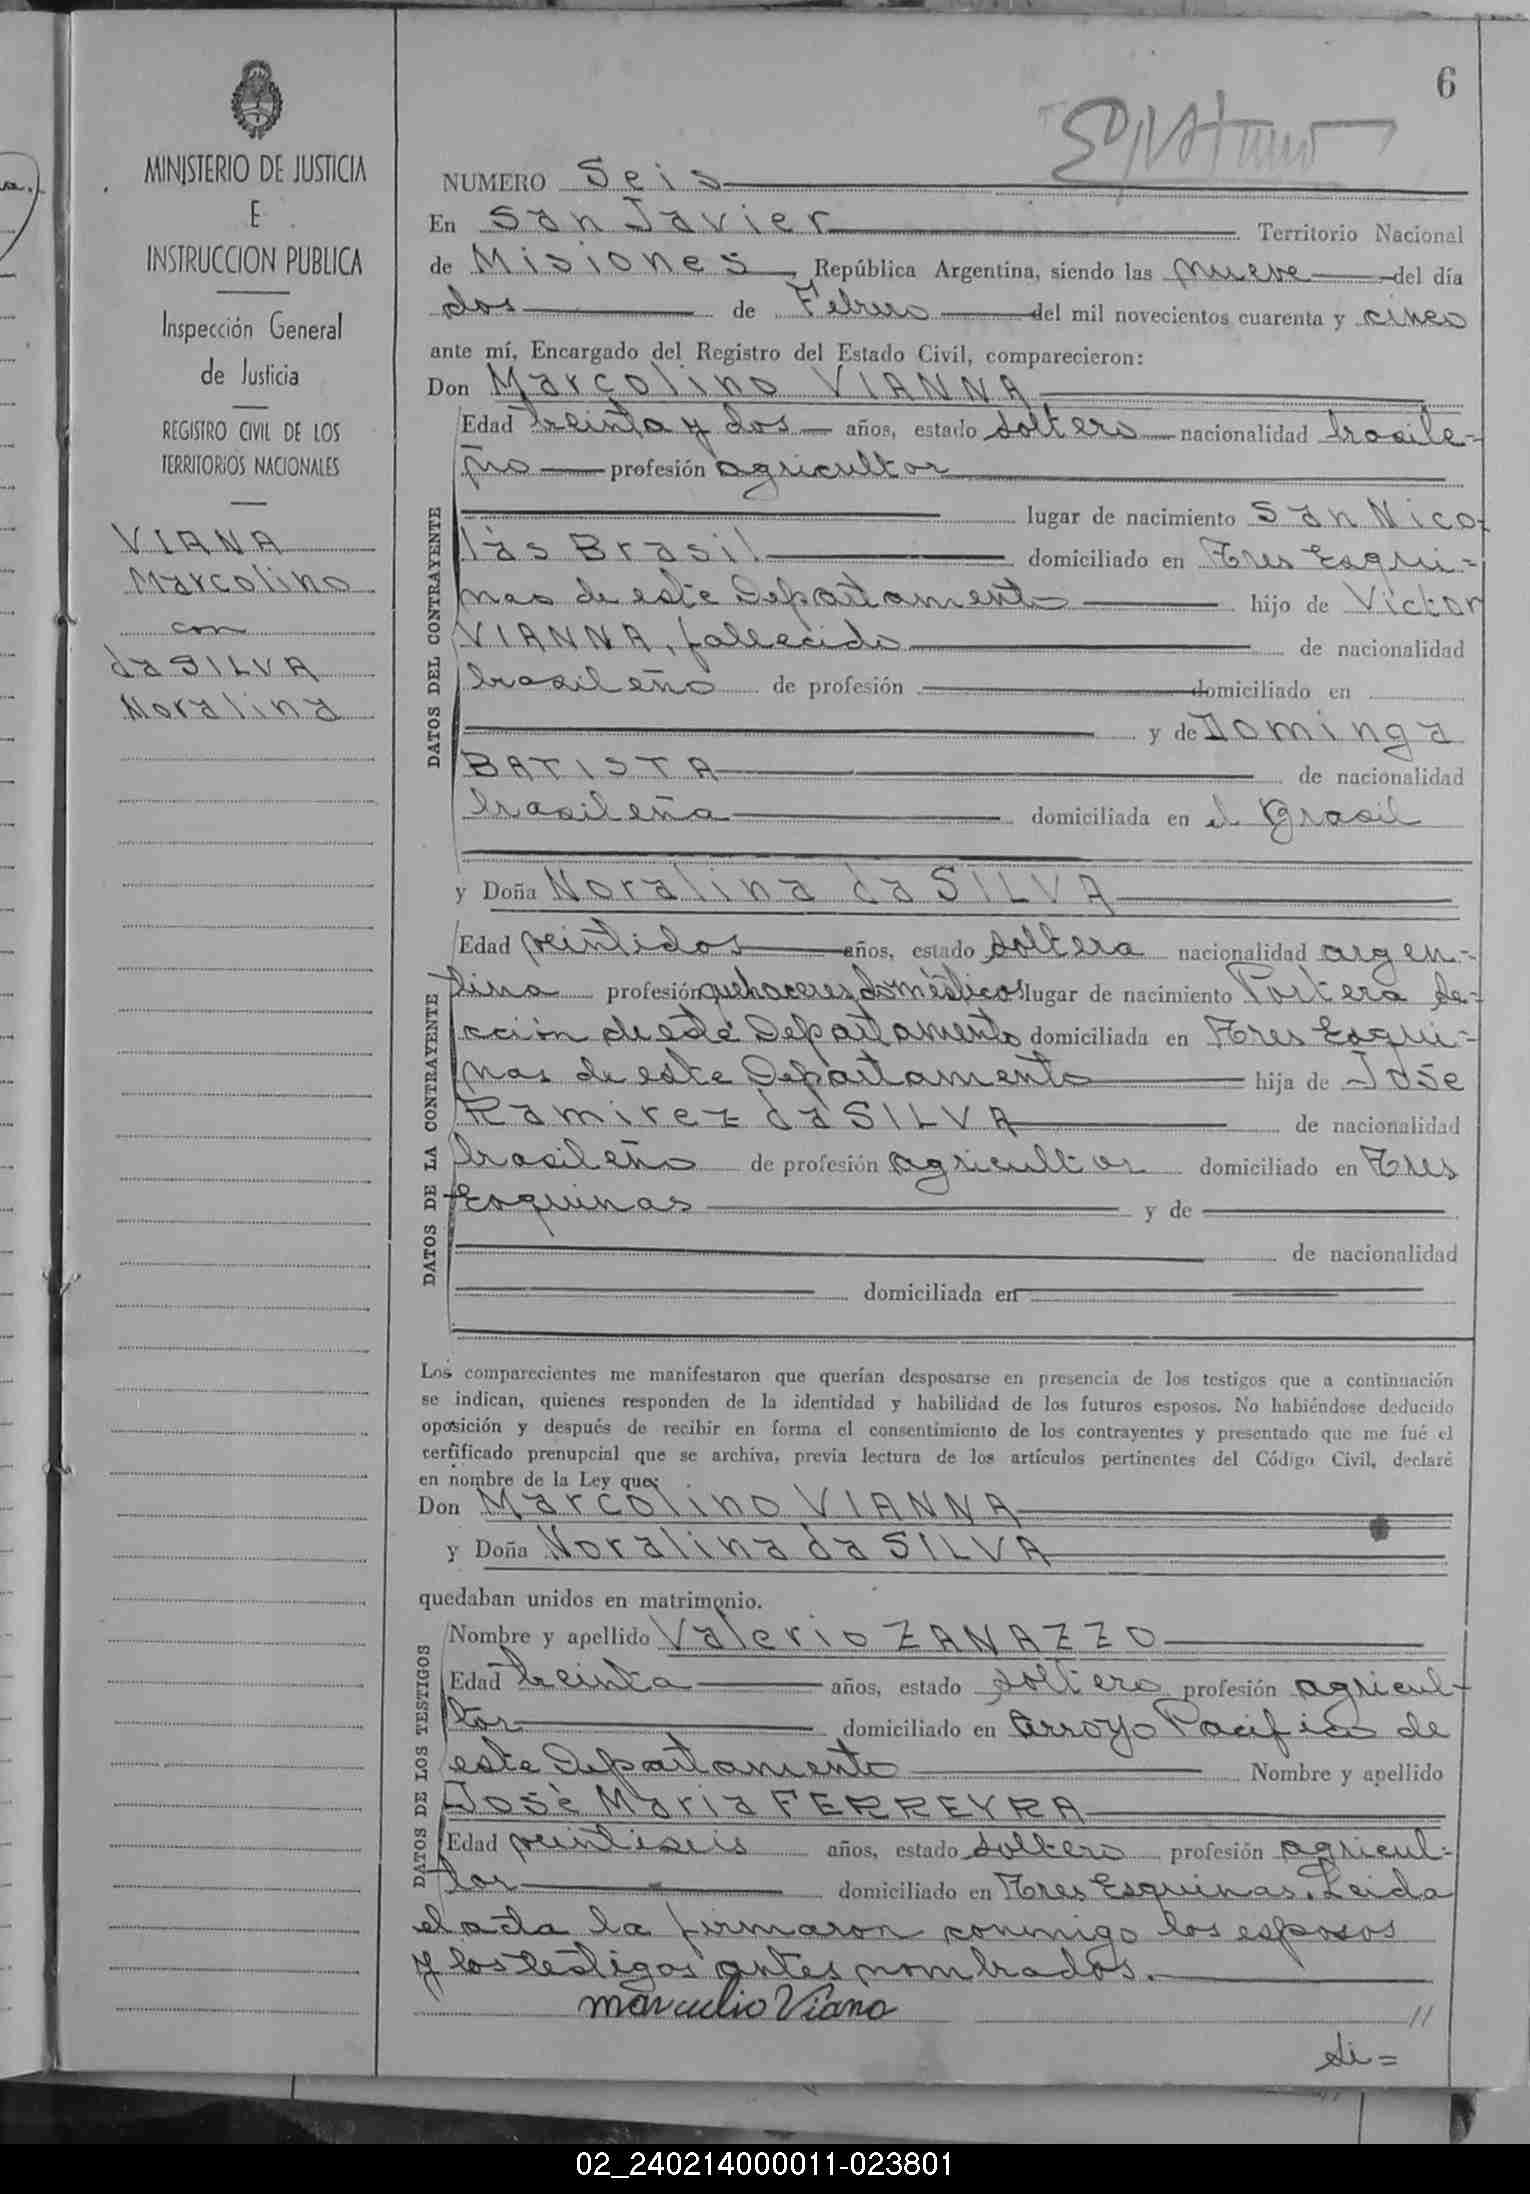 6
MINISTERIO DE JUSTICIA
E
INSTRUCCION PUBLICA
Inspección General
de Justicia
REGISTRO CIVIL DE LOS
TERRITORIOS NACIONALES
VIANA
Marcolino
con
da SILVA
Noralina
NUMERO Seis
En San Javier Territorio Nacional
de Misiones, República Argentina, siendo las nueve del día
dos de Febrero del mil novecientos cuarenta y cinco
ante mí, Encargado del Registro del Estado Civil, comparecieron:
Don Marcolino VIANNA
DATOS DEL CONTRAYENTE
Edad treinta y dos años, estado soltero nacionalidad brasile-
ño profesión agricultor
lugar de nacimiento San Nico-
lás Brasil domiciliado en Tres Esqui-
nas de este Departamento hijo de Victor
VIANNA, fallecido de nacionalidad
brasileño de profesión domiciliado en
y de Dominga
BATISTA de nacionalidad
brasileña domiciliada en el Brasil
y Doña Noralina da SILVA
DATOS DE LA CONTRAYENTE
Edad veintidos años, estado soltera nacionalidad argen-
tina profesión quehaceres domésticos lugar de nacimiento Portera Se-
cción de este Departamento domiciliada en Tres Esqui-
nas de este Departamento hija de José
Ramirez da SILVA de nacionalidad
brasileño de profesión agricultor domiciliado en Tres
Esquinas y de
de nacionalidad
domiciliada en
Los comparecientes me manifestaron que querían desposarse en presencia de los testigos que a continuación
se indican, quienes responden de la identidad y habilidad de los futuros esposos. No habiéndose deducido
oposición y después de recibir en forma el consentimiento de los contrayentes y presentado que me fué el
certificado prenupcial que se archiva, previa lectura de los artículos pertinentes del Código Civil, declaré
en nombre de la Ley que:
Don Marcolino VIANNA
y Doña Noralina da SILVA
quedaban unidos en matrimonio.
DATOS DE LOS TESTIGOS
Nombre y apellido Valerio ZANAZZO
Edad treinta años, estado soltero profesión agricul-
tor domiciliado en Arroyo Pacifico de
este Departamento Nombre y apellido
José Maria FERREYRA
Edad veintiseis años, estado soltero profesión agricul-
tor domiciliado en Tres Esquinas. Leida
el acta la firmaron conmigo los esposos
y los testigos antes nombrados.
Viana
//
si=
02_240214000011-023801